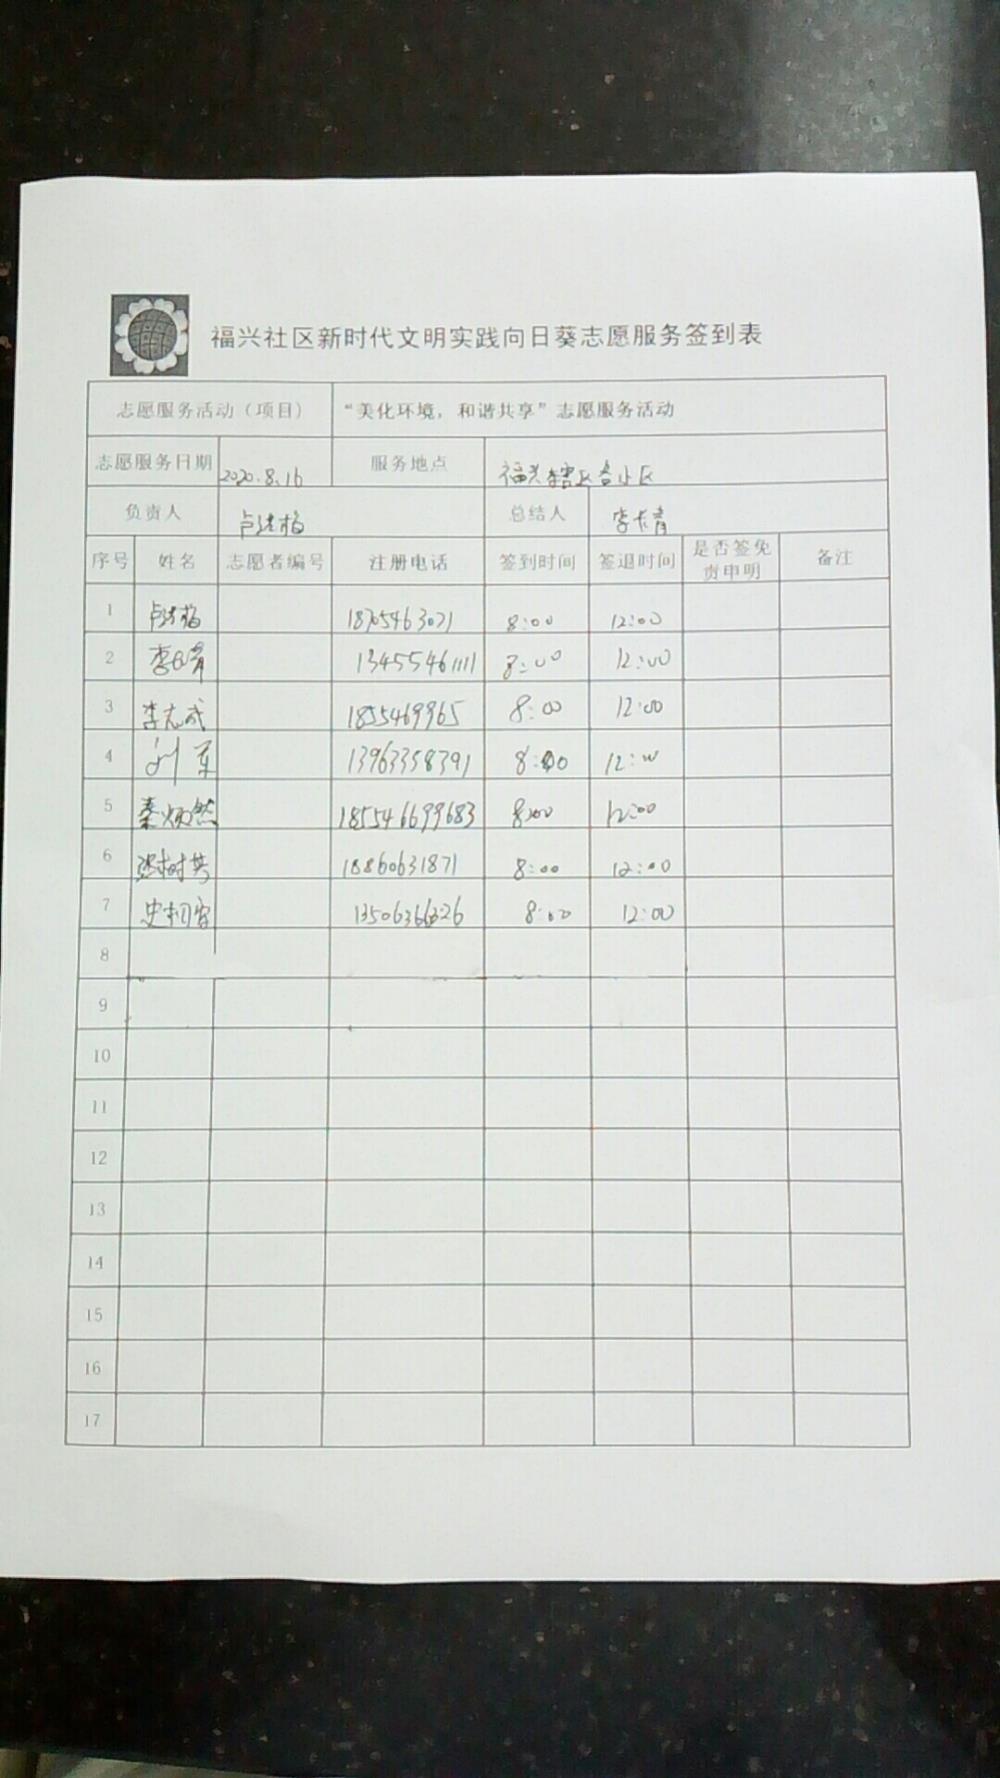 福兴社区新时代文明实践向日葵志愿服务签到表
志愿服务活动（项目） “美化环境，和谐共享”志愿服务活动
志愿服务日期 2020.8.16 服务地点 福兴辖区各小区
负责人 总结人 李长青
序号 姓名 志愿者编号 注册电话 签到时间 签退时间 是否签免责申明 备注
1 18705463071 8:00 12:00
2 13455461111 8:00 12:00
3 李志成 1855469965 8:00 12:00
4 13963358391 8:00 12:00
5 秦炳然 185546699683 8:00 12:00
6 18860631871 8:00 12:00
7 8:00 12:00
8
9
10
11
12
13
14
15
16
17